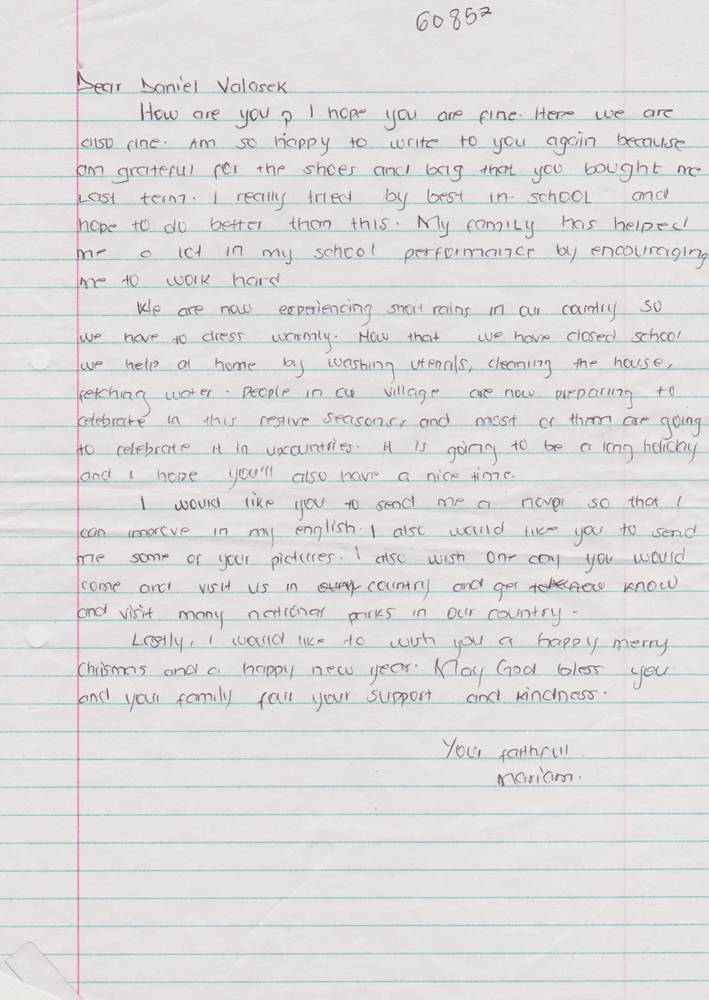 60852
Dear Daniel Valasek
How are you? I hope you are fine. Here we are
also fine. Am so happy to write to you again because
am grateful for the shoes and bag that you bought me
last term. I really tried by best in school and
hope to do better than this. My family has helped
me a lot in my school performance by encouraging
me to work hard
We are now experiencing short rains in our country so
we have to dress warmly. Now that we have closed school
we help at home by washing utensils, cleaning the house,
fetching water. People in our village are now preparing to
celebrate in this festive seasons, and most of them are going
to celebrate it in upcountries. It is going to be a long holiday
and I hope you'll also have a nice time.
I would like you to send me a novel so that I
can improve in my english. I also would like you to send
me some of your pictures. I also wish one day you would
come and visit us in country and get know
and visit many national parks in our country.
Lastly, I would like to wish you a happy merry
Chrismas and a happy new year. May God bless you
and your family for your support and kindness.
Your faithfull
Mariam.